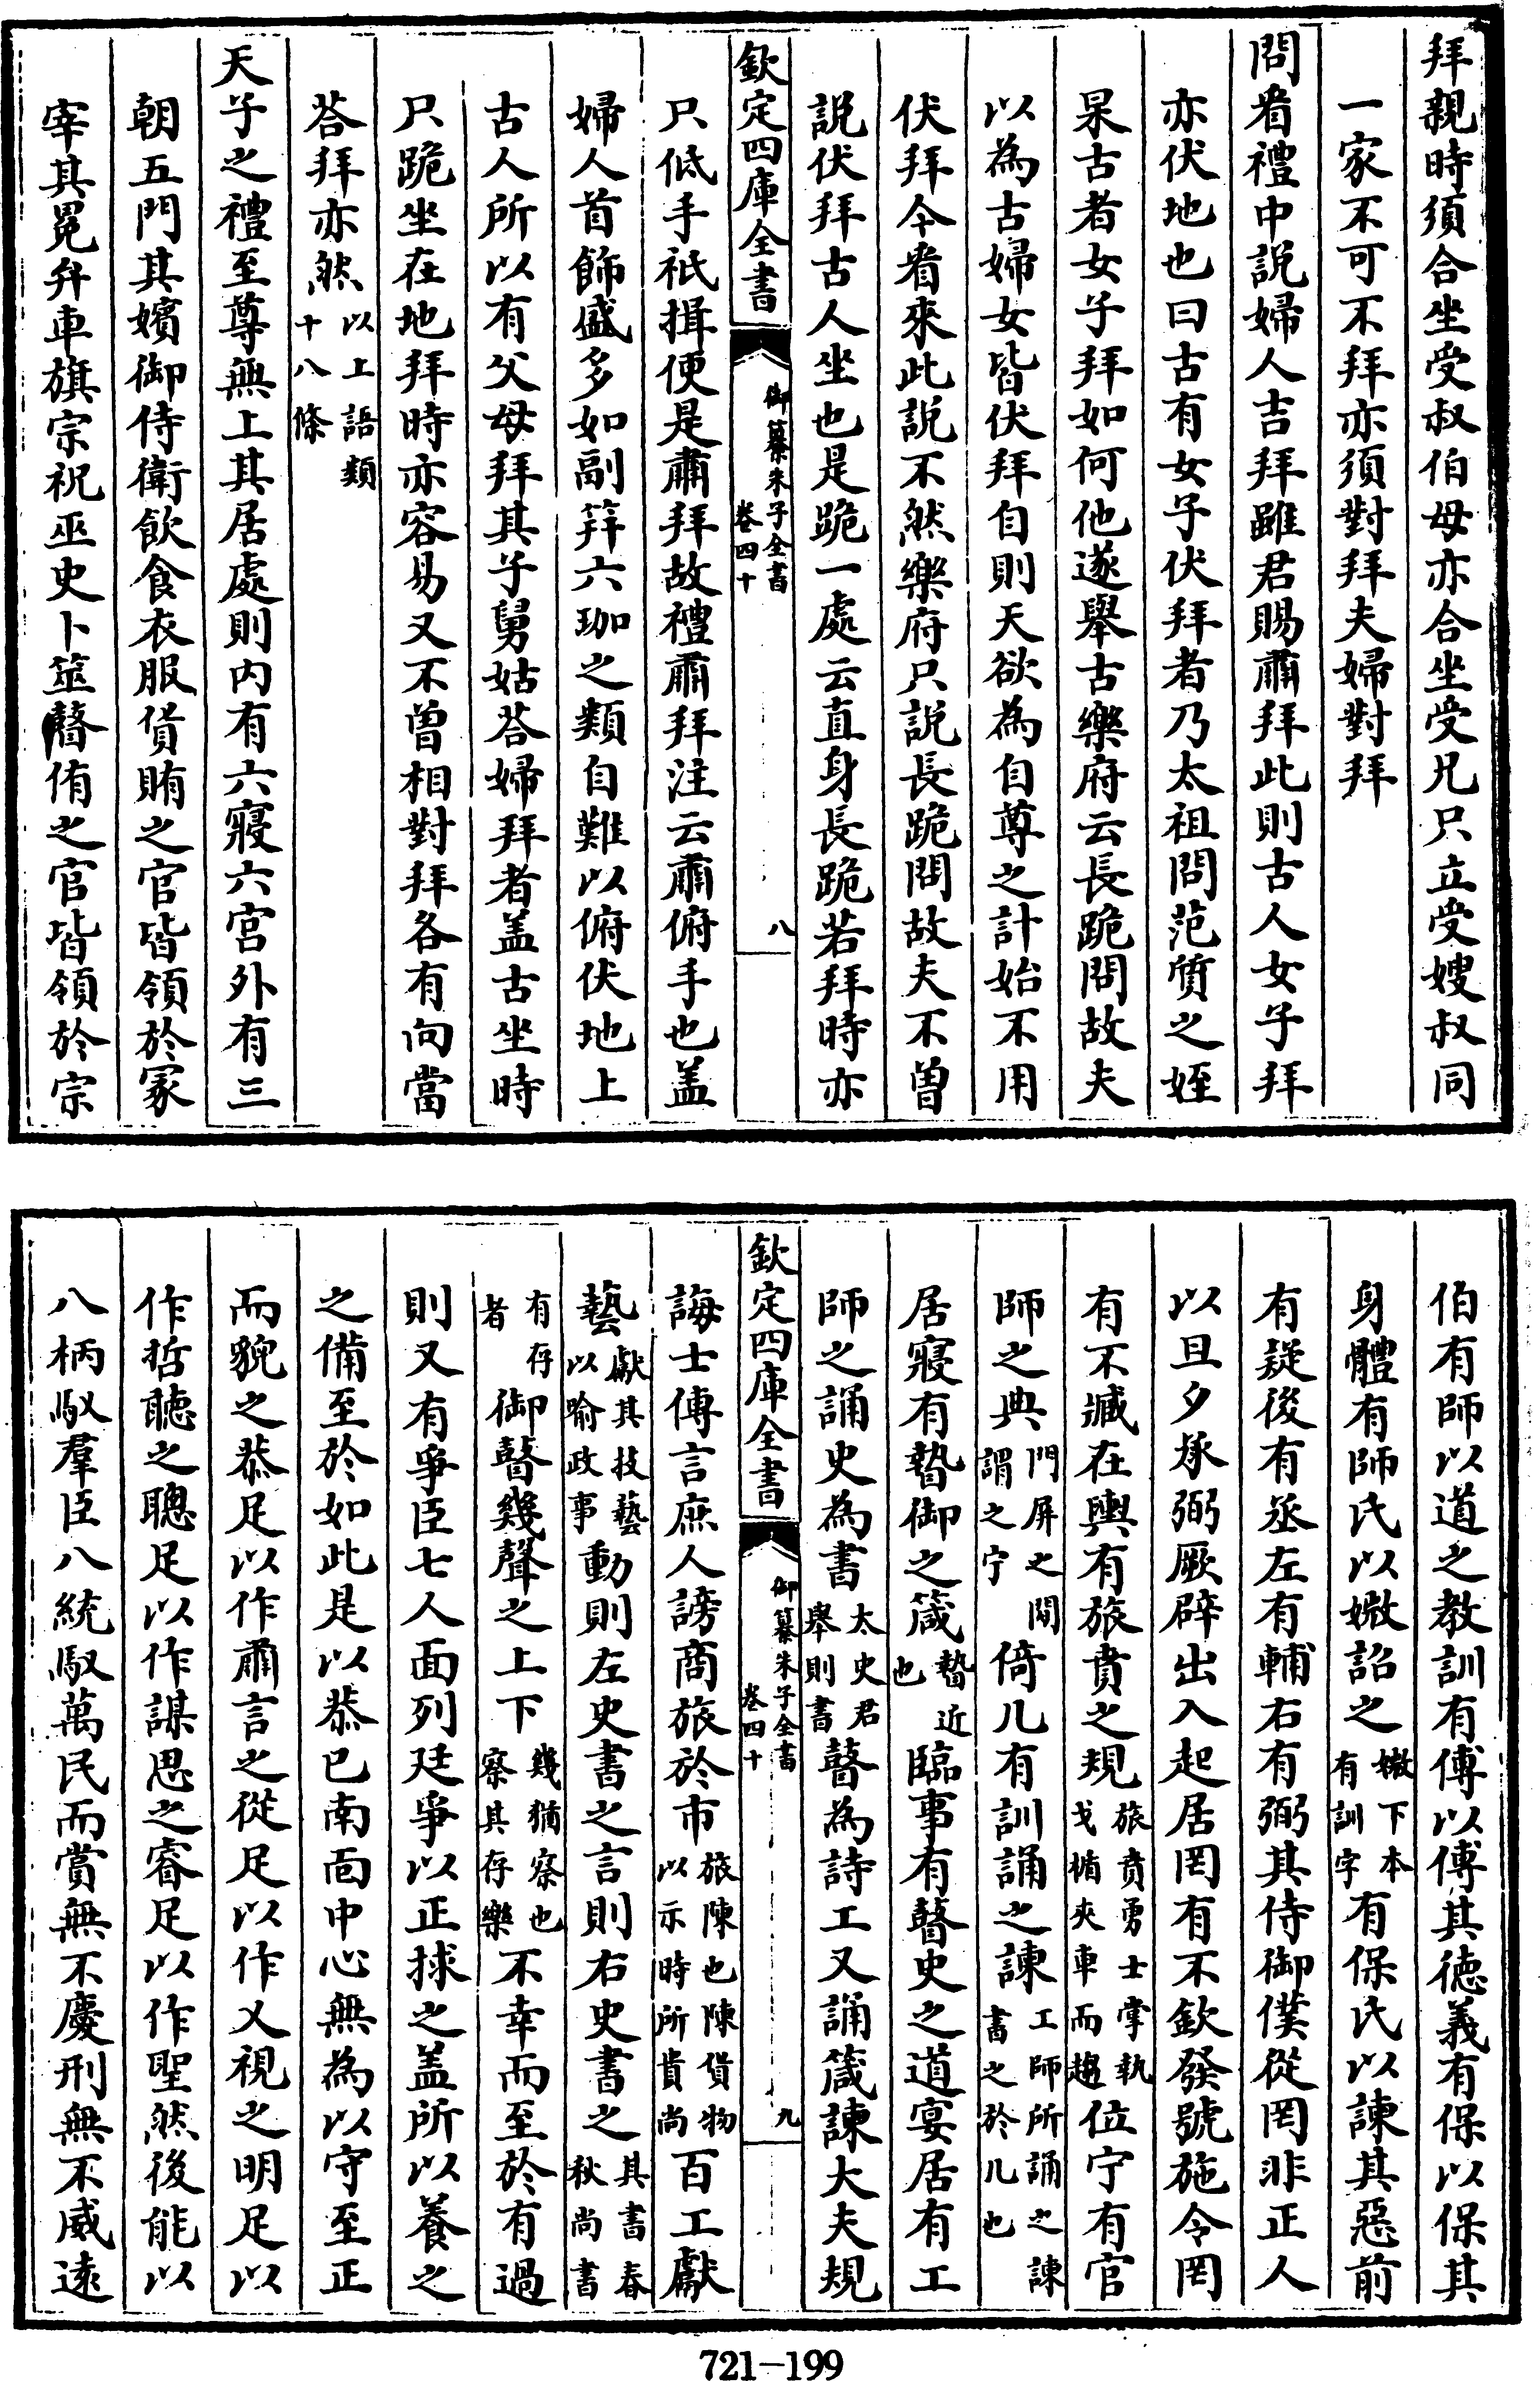 拜親時須合坐受叔伯母亦合坐受兄只立受嫂叔同
一家不可不拜亦須對拜夫婦對拜
問看禮中說婦人吉拜雖君賜肅拜此則古人女子拜
亦伏地也曰古有女子伏拜者乃太祖問范質之姪
杲古者女子拜如何他遂舉古樂府云長跪問故夫
以為古婦女皆伏拜自則天欲為自尊之計始不用
伏拜今看來此說不然樂府只說長跪問故夫不曾
說伏拜古人坐也是跪一處云直身長跪若拜時亦
欽定四庫全書 御纂朱子全書 卷四十 八
只低手祇揖便是肅拜故禮肅拜注云肅俯手也盖
婦人首飾盛多如副笄六珈之類自難以俯伏地上
古人所以有父母拜其子舅姑荅婦拜者盖古坐時
只跪坐在地拜時亦容易又不曾相對拜各有向當
荅拜亦然以上語類十八條
天子之禮至尊無上其居處則内有六寢六宫外有三
朝五門其嬪御侍衛飲食衣服貨賄之官皆領於冢
宰其冕弁車旗宗祝巫史卜筮瞽侑之官皆領於宗
伯有師以道之教訓有傅以傅其徳義有保以保其
身體有師氏以媺詔之媺下本有訓字有保氏以諫其惡前
有疑後有丞左有輔右有弼其侍御僕從罔非正人
以旦夕承弼厥辟出入起居罔有不欽發號施令罔
有不臧在輿有旅賁之規旅賁勇士掌執戈楯夾車而趨位宁有官
師之典門屏之間謂之宁倚几有訓誦之諫工師所誦之諫書之於几也
居寢有暬御之箴暬近也臨事有瞽史之道宴居有工
師之誦史為書太史君舉則書瞽為詩工又誦箴諫大夫規
欽定四庫全書 御纂朱子全書 卷四十 九
誨士傳言庶人謗商旅於市旅陳也陳貨物以示時所貴尚百工獻
藝獻其技藝以喻政事動則左史書之言則右史書之其書春秋尚書
有存者御瞽幾聲之上下幾猶察也察其存樂不幸而至於有過
則又有爭臣七人面列廷爭以正捄之盖所以養之
之備至於如此是以恭已南面中心無為以守至正
而貌之恭足以作肅言之從足以作乂視之明足以
作哲聽之聰足以作謀思之睿足以作聖然後能以
八柄馭羣臣八統馭萬民而賞無不慶刑無不威逺
721-199